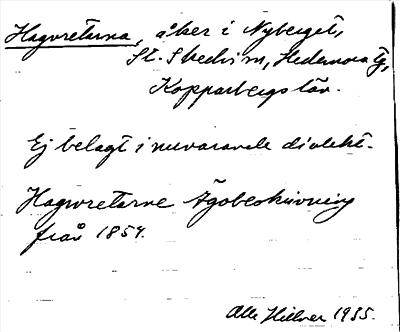 Hagvretarna, åker i Nyberget,
St. Skedvi sn, Hedemora tg,
Kopparbergs län.
Ej belagt i nuvarande dialekt.
Hagvretarne Ägobeskrivning
från 1854.
Alle Hillver 1935.